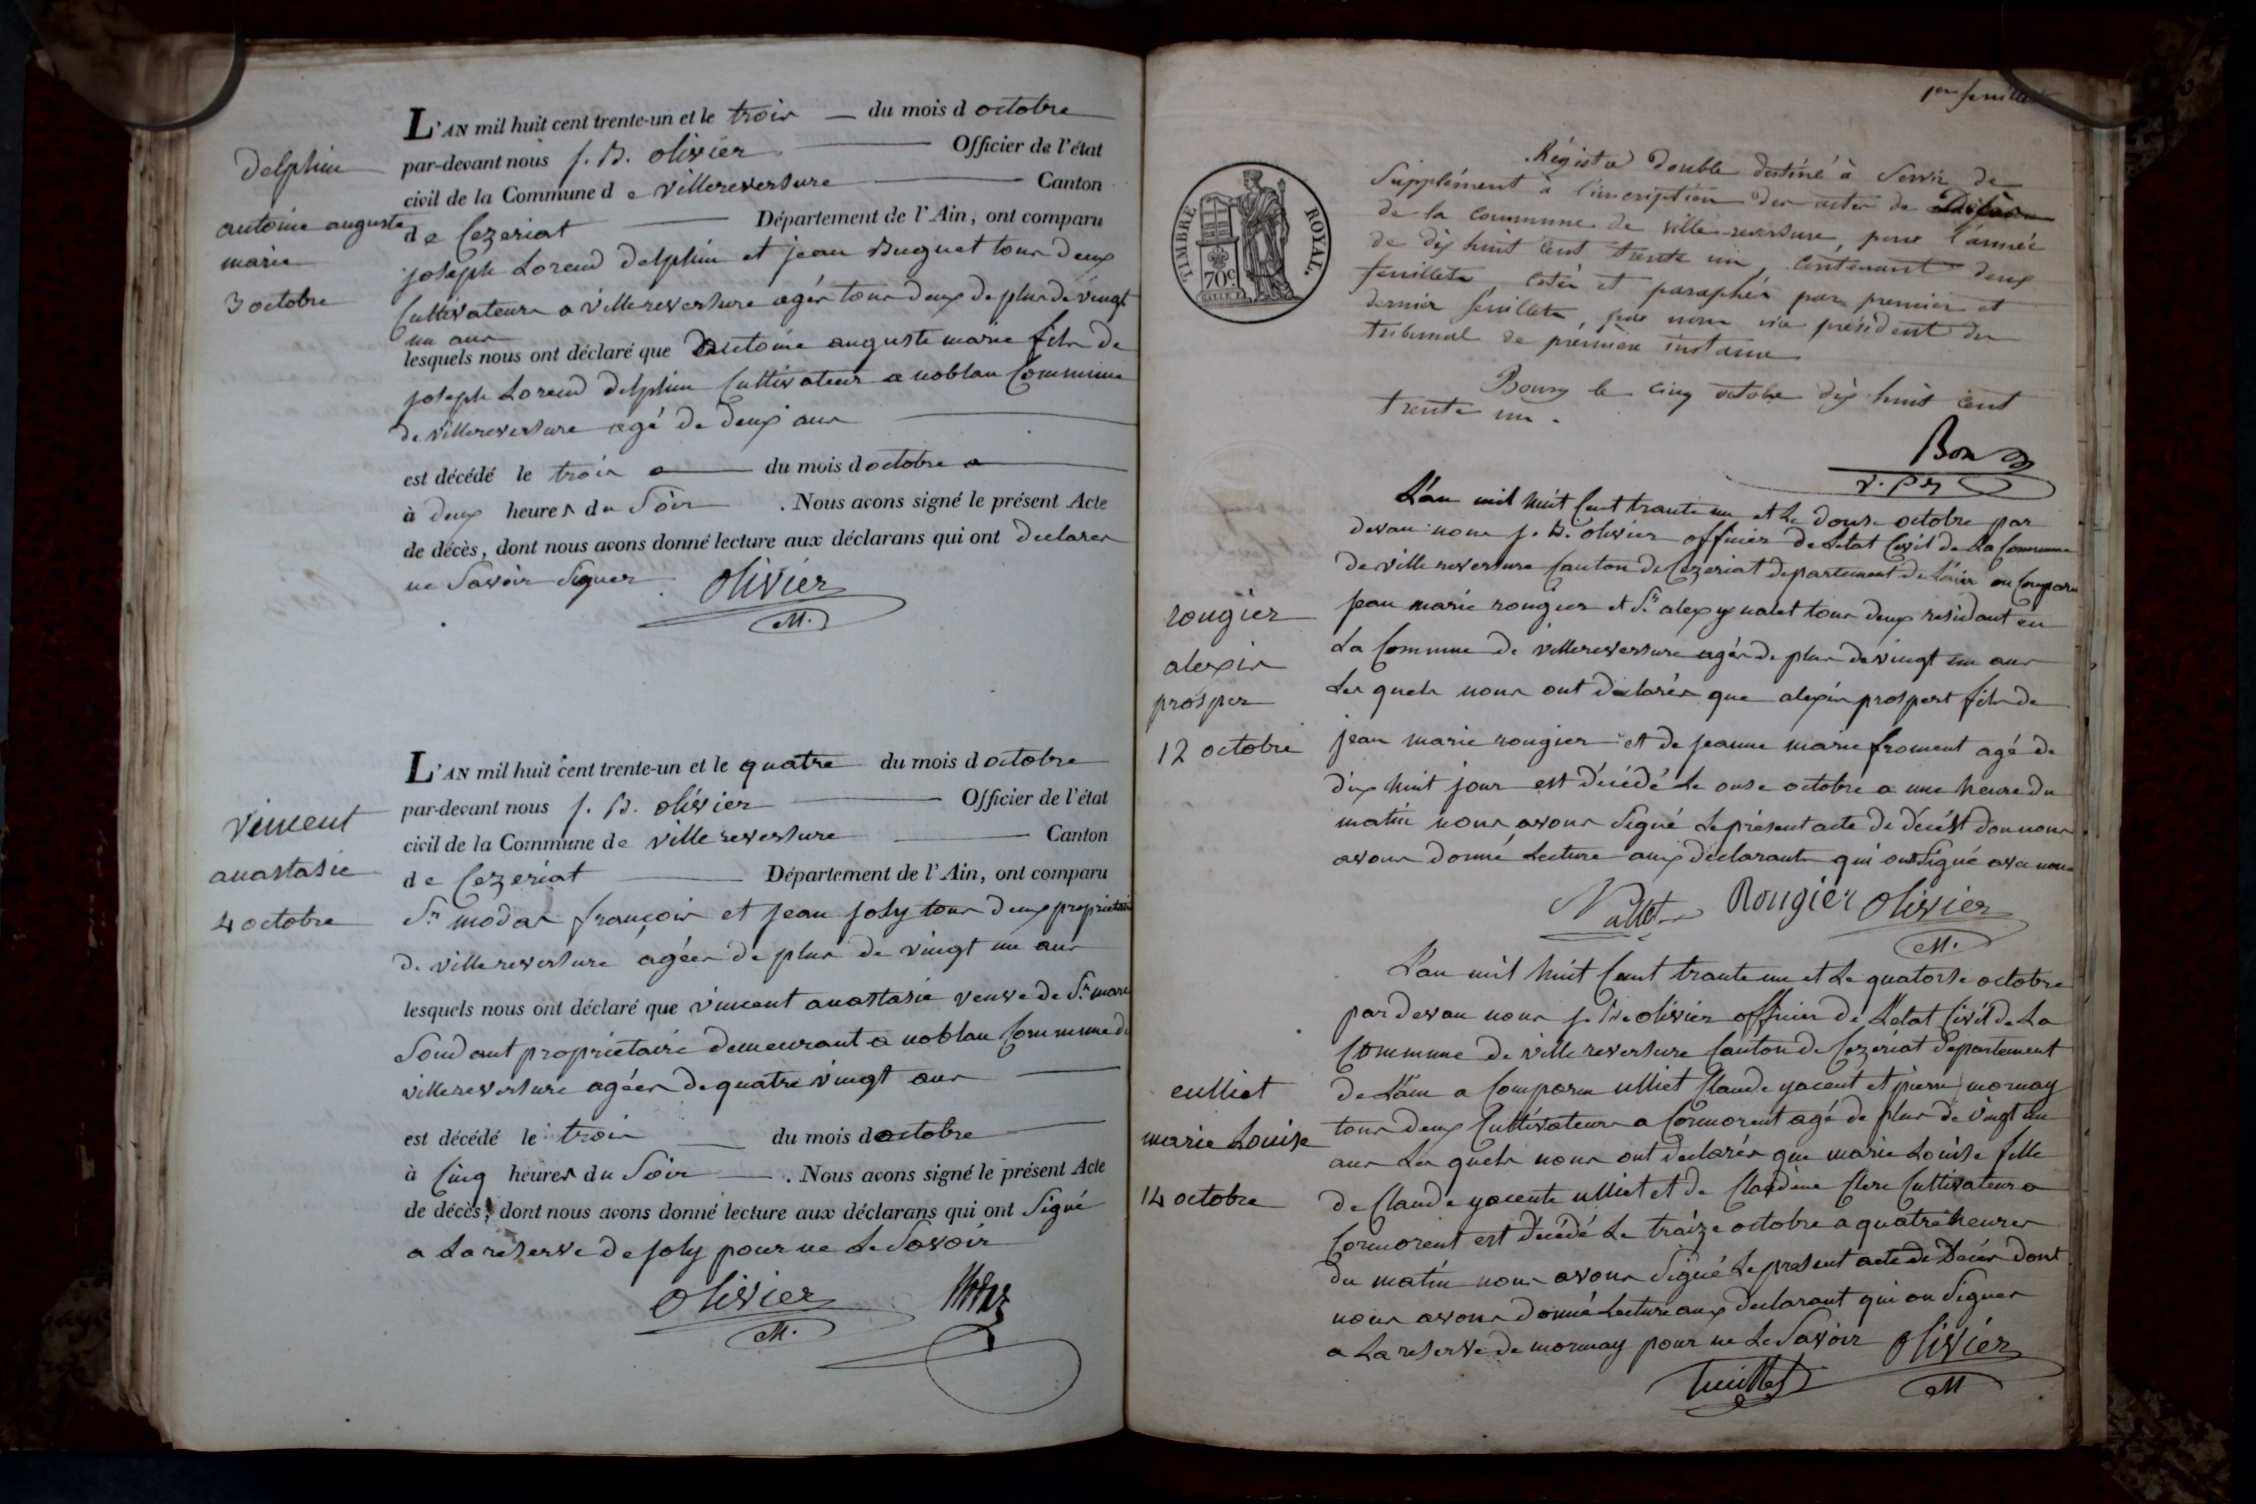 delphin
antoine auguste
marie
3 octobre
L'AN mil huit cent trente-un et le trois du mois d octobre
par-devant nous J. B. olivier Officier de l'état
civil de la Commune d e villereversure Canton
de Cezeriat Département de l'Ain, ont comparu
joseph Lorend delphin et jean Buguet tous deux
Cultivateurs a villereversure agés tous deux de plus de vingt
un ans
lesquels nous ont déclaré que antoine auguste marie fils de
joseph Lorend delphin Cultivateur a noblan Commune
de villereversure agé de deux ans
est décédé le trois du mois d octobre
à deux heures du Soir . Nous avons signé le présent Acte
de décès, dont nous avons donné lecture aux déclarans qui ont declarer
ne Savoir Signer. olivier
M.
vincent
anastasie
4 octobre
L'AN mil huit cent trente-un et le quatre du mois d octobre
par-devant nous J. B. olivier Officier de l'état
civil de la Commune de villereversure Canton
de Cezeriat Département de l'Ain, ont comparu
Sr. modas françois et jean joly tous deux proprietaire
de villereversure agées de plus de vingt un ans
lesquels nous ont déclaré que vincent anastasie veuve de Sr. marc
Soudant proprietaire demeurant a noblan Commune de
villereversure agées de quatre vingt ans
est décédé le trois du mois d octobre
à Cinq heures du Soir . Nous avons signé le présent Acte
de décès, dont nous avons donné lecture aux déclarans qui ont Signé
a La reserve de joly pour ne Le Savoir
olivier
M.
1er feuillet
TIMBRE ROYAL.
70c.
Régistre double destiné à Servir de
Supplément à l'inscription des actes de Décès
de la commune de villereversure, pour l'année
de dix huit cent trente un, contenant deux
feuillets cotés et paraphés par premier et
dernier feuillets, par nous vice président du
tribunal de première instance
Bourg le cinq octobre dix huit cent
trente un.
Bon
v. Pt
rougier
alexis
prosper
12 octobre
L'an mil huit Cent trante un et Le douse octobre par
devan nous J. B. olivier officier de Letat Civil de La Commune
de villereversure Canton de Cezeriat departement de L'ain on Comparu
jean marie rougier et Sr. alexy nalet tous deux residant en
La Commune de villereversure agés de plus de vingt un ans
Les quels nous ont déclarés que alexis prospert fils de
jean marie rougier et de jeanne marie froment agé de
dix huit jour est décédé Le onse octobre a une heure du
matin nous avons Signé Le présent acte de décést don nous
avons donné Lecture aux déclarants qui ont Signé avec nous
Nallet Rougier olivier
M.
eulliet
marie Louise
14 octobre
L'an mil huit Cent trante un et Le quatorse octobre
par devan nous J. Bte olivier officier de L'etat Civil de La
Commune de villereversure Canton de Cezeriat departement
de L'ain a Comparu ulliet Claude yacent et pierre mornay
tous deux Cultivateurs a Cormorent agé de plus de vingt un
ans Les quels nous ont declarés que marie Louise fille
de Claude yacente ulliet et de Claudine Clerc Cultivateurs a
Cormorent est décédé Le traize octobre a quatre heures
du matin nous avons Signé Le present acte de Décès dont
nous avons donné Lecture aux declarant qui on Signer
a La reserve de mornay pour ne Le Savoir olivier
M